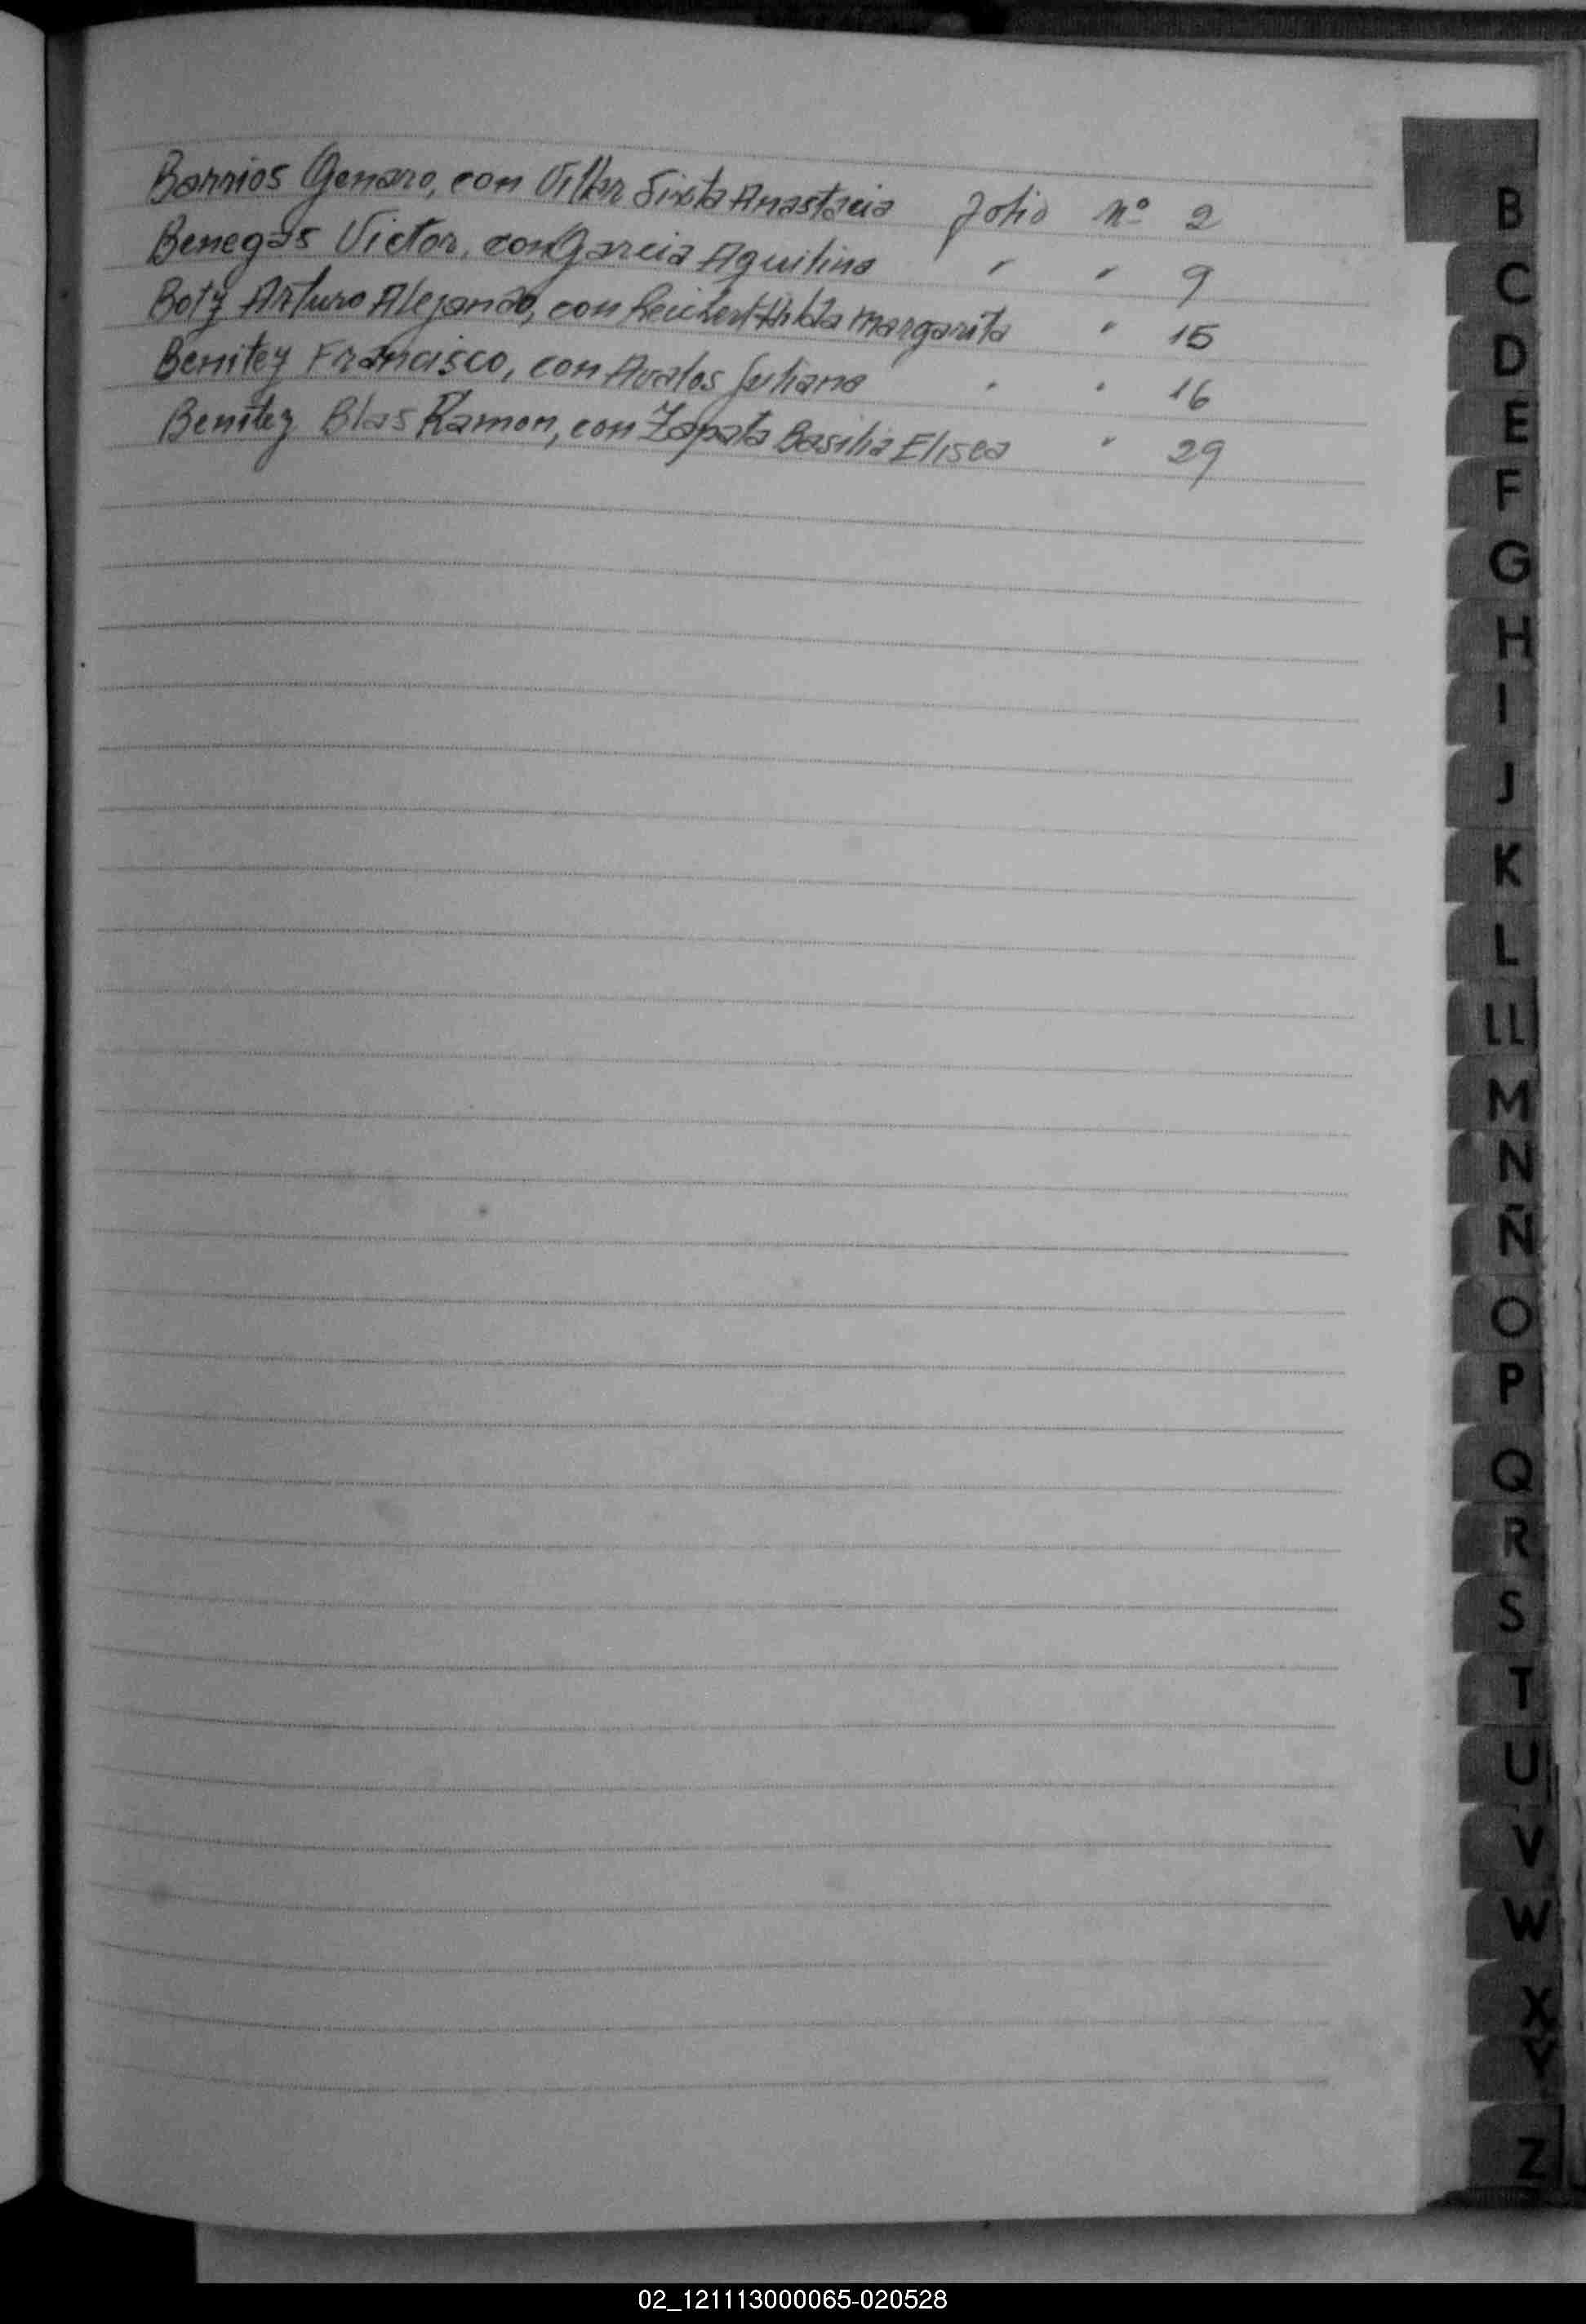 Barrios Genaro, con Villar Sixta Anastacia folio nº 2
Benegas Victor, con Garcia Aquilina " " 9
Botz Arturo Alejandro, con Reichert Hilda Margarita " 15
Benitez Francisco, con Avalos Juliana " " 16
Benitez Blas Ramon, con Zapata Basilia Elisea " 29
B
C
D
E
F
G
H
I
J
K
L
LL
M
N
Ñ
O
P
Q
R
S
T
U
V
W
X
Y
Z
02_121113000065-020528